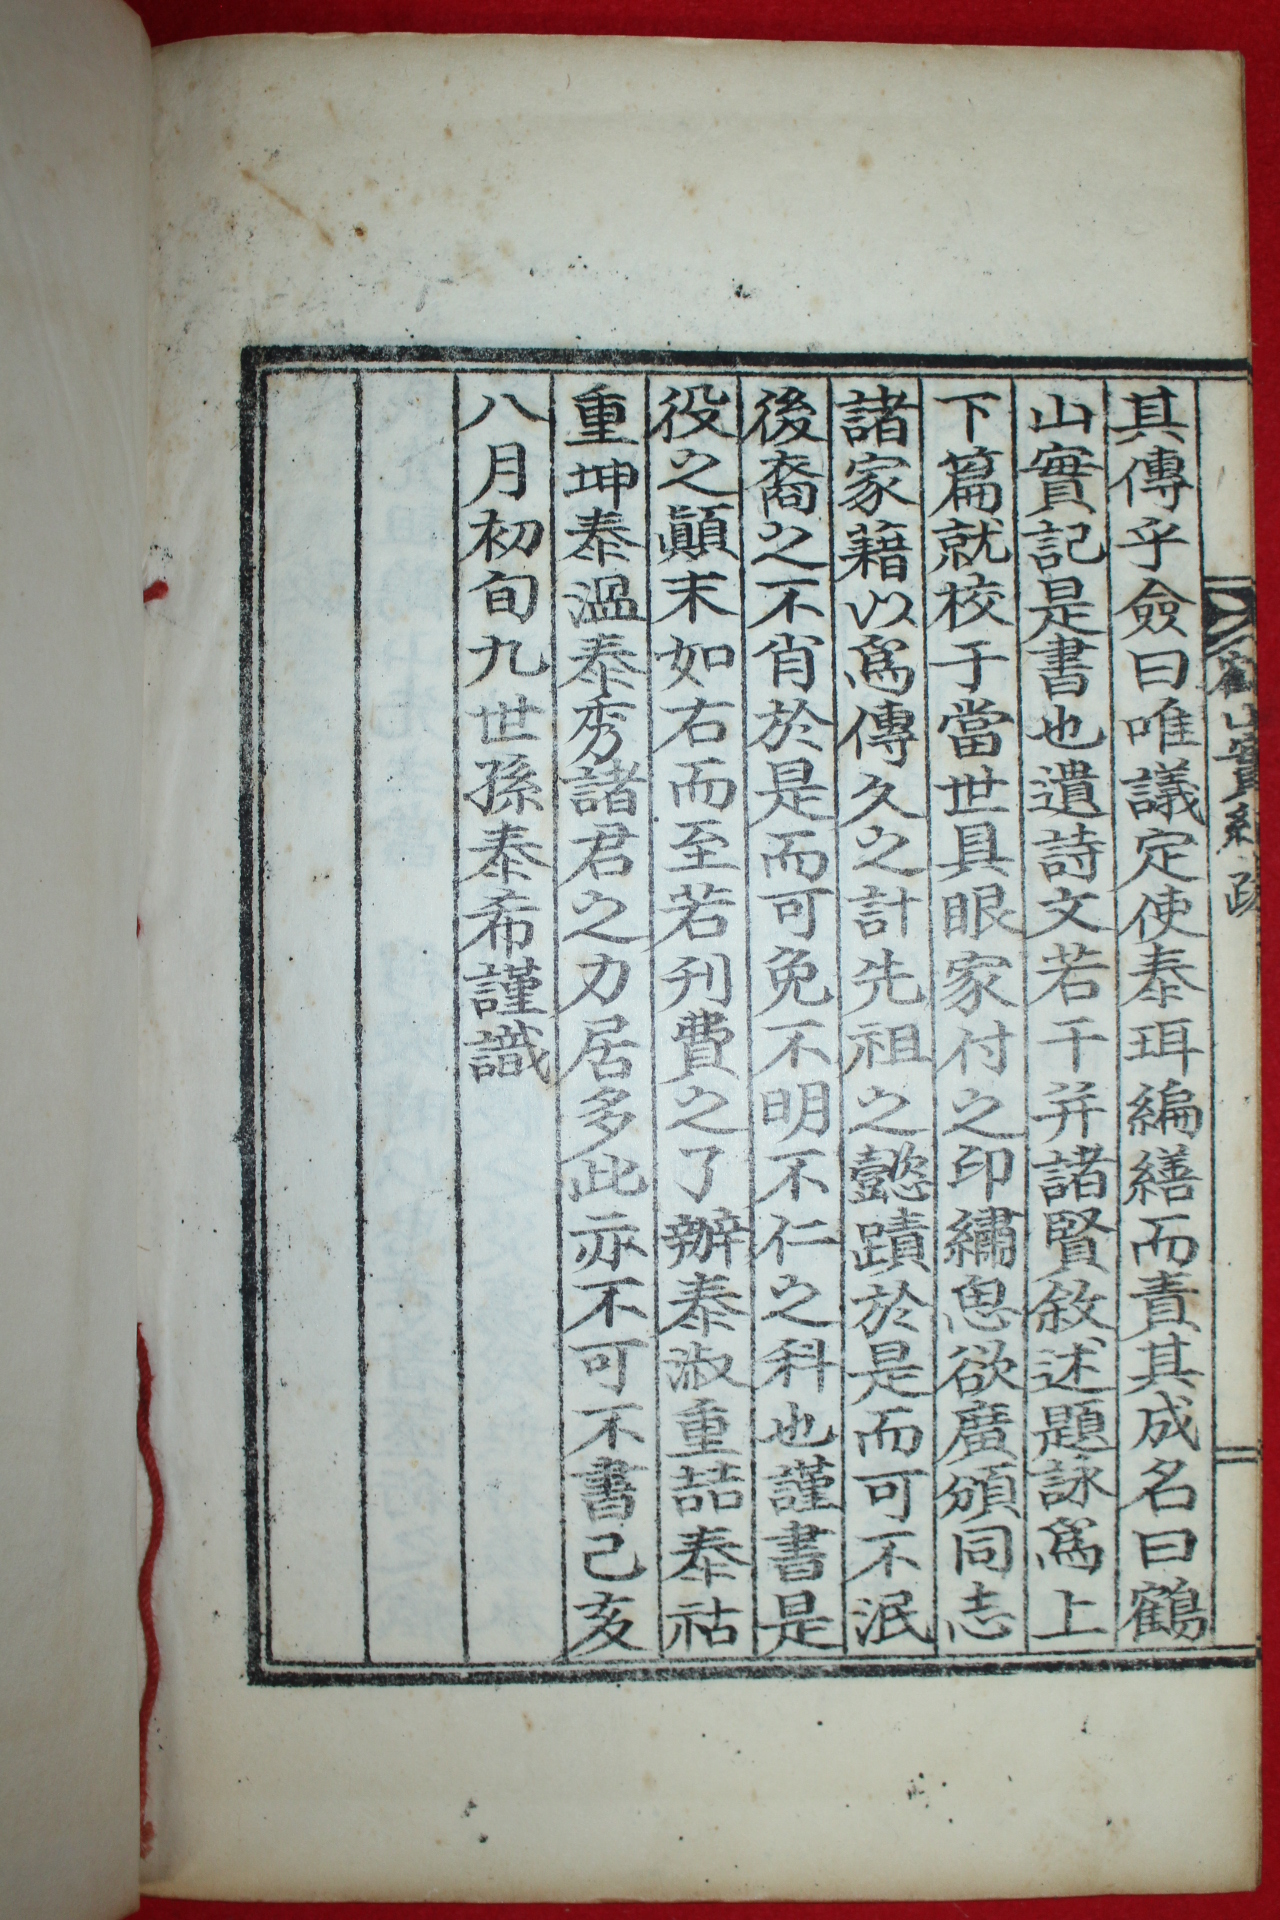 其傳乎僉曰唯議定使泰珥編繕而責其成名曰鶴
山實記是書也遺詩文若干并諸賢敘述題詠爲上
下篇就校于當世具眼家付之印繡思欲廣頒同志
諸家籍以爲傳久之計先祖之懿蹟於是而可不泯
後裔之不肖於是而可免不明不仁之科也謹書是
役之顚末如右而至若刋費之了辦泰淑重喆泰祜
重坤泰溫泰秀諸君之力居多此亦不可不書己亥
八月初旬九世孫泰希謹識